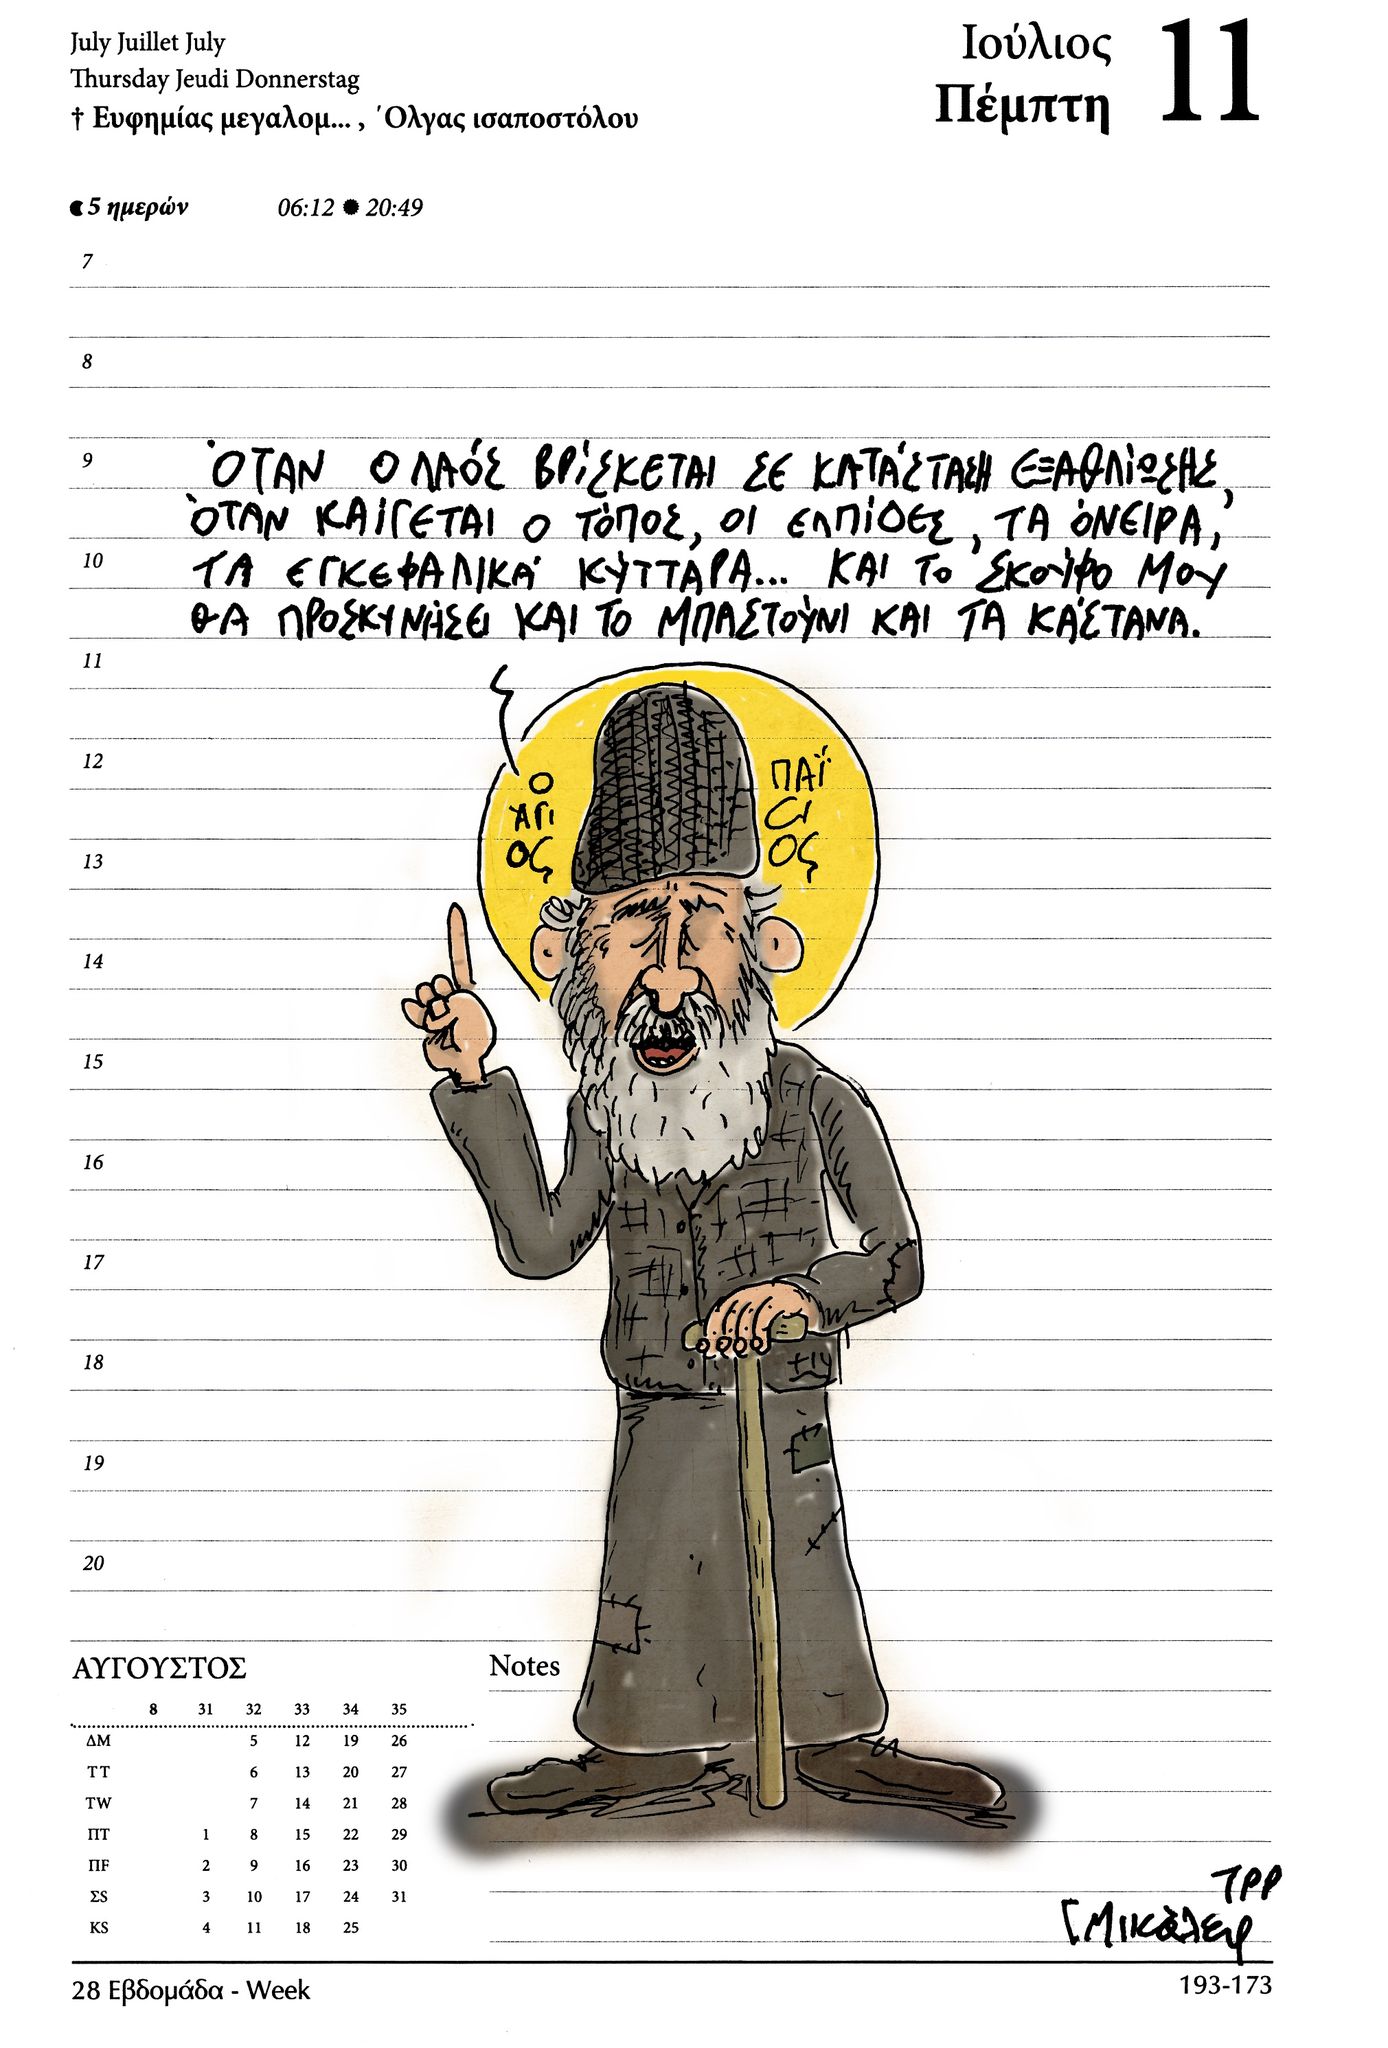 July Juillet July
Thursday Jeudi Donnerstag
† Ευφημίας μεγαλομ... , Όλγας ισαποστόλου
Ιούλιος
Πέμπτη
11
5 ημερών 06:12 20:49
7
8
9
ΌΤΑΝ Ο ΛΑΌΣ ΒΡΊΣΚΕΤΑΙ ΣΕ ΚΑΤΆΣΤΑΣΗ ΕΞΑΘΛΊΩΣΗΣ,
ΌΤΑΝ ΚΑΊΓΕΤΑΙ Ο ΤΌΠΟΣ, ΟΙ ΕΛΠΊΔΕΣ, ΤΑ ΌΝΕΙΡΑ,
10
ΤΑ ΕΓΚΕΦΑΛΙΚΆ ΚΎΤΤΑΡΑ... ΚΑΙ ΤΟ ΣΚΟΎΦΟ ΜΟΥ
ΘΑ ΠΡΟΣΚΥΝΉΣΕΙ ΚΑΙ ΤΟ ΜΠΑΣΤΟΎΝΙ ΚΑΙ ΤΑ ΚΆΣΤΑΝΑ.
11
12
Ο
ΑΓΙ
ΟΣ
ΠΑΪ
ΣΙ
ΟΣ
13
14
15
16
17
18
19
20
ΑΥΓΟΥΣΤΟΣ
8 31 32 33 34 35
ΔM 5 12 19 26
ΤT 6 13 20 27
ΤW 7 14 21 28
ΠT 1 8 15 22 29
ΠF 2 9 16 23 30
ΣS 3 10 17 24 31
ΚS 4 11 18 25
Notes
ΤΡΡ
Γ. Μικάλεφ
28 Εβδομάδα - Week
193-173